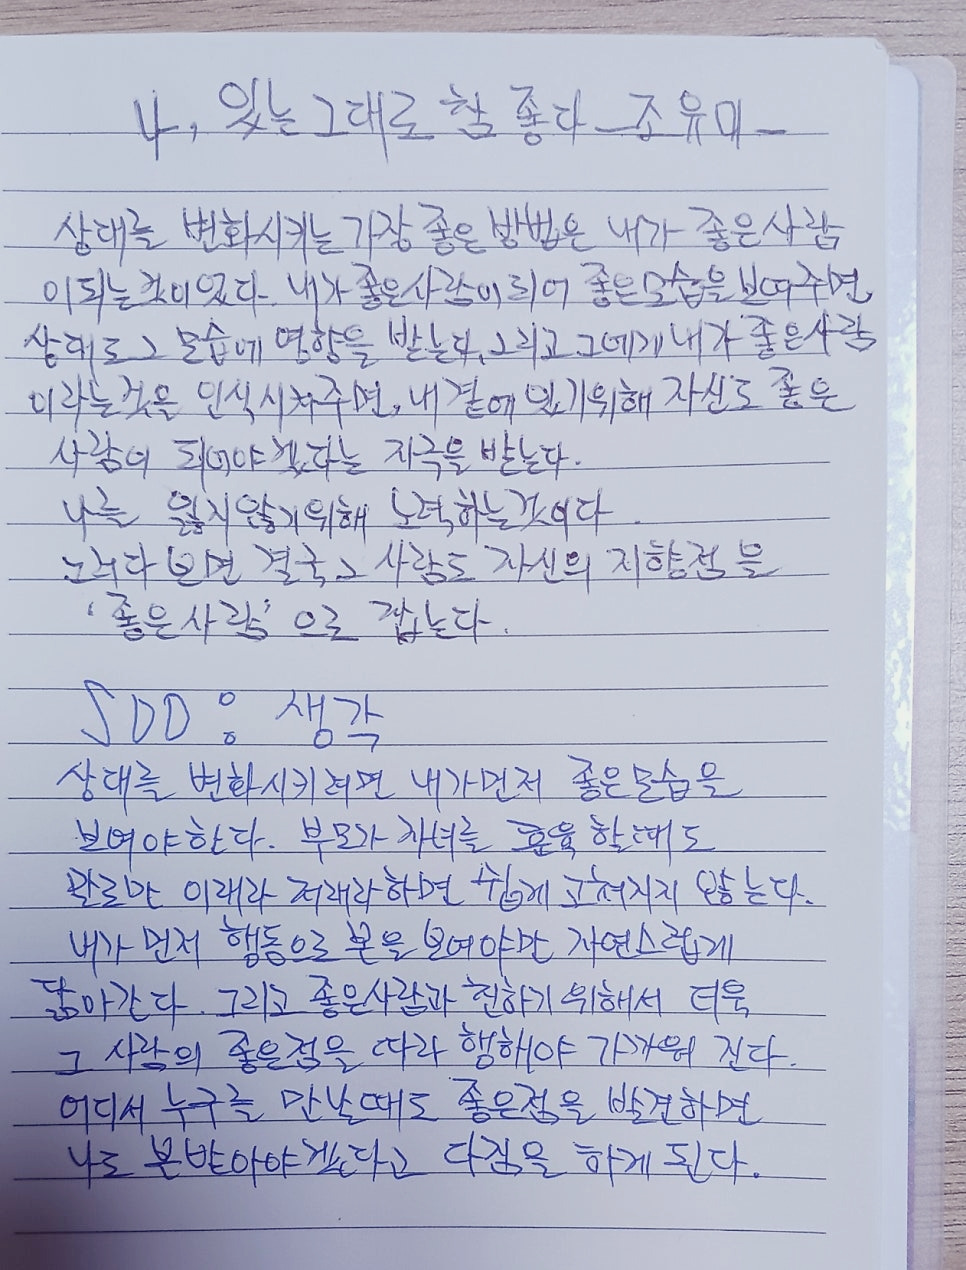 나, 있는 그대로 참 좋다 -조유미-
상대를 변화시키는 가장 좋은 방법은 내가 좋은사람
이되는것이었다. 내가 좋은사람이 되어 좋은모습을 보여주면,
상대로 그 모습에 영향을 받는다. 그리고 그에게 내가 좋은사람
이라는것을 인식시켜주면, 내 곁에 있기위해 자신도 좋은
사람이 되어야겠다는 자극을 받는다.
나를 잃지않기위해 노력하는것이다.
그러다 보면 결국 그 사람도 자신의 지향점을
'좋은사람'으로 잡는다.
SDD : 생각
상대를 변화시키려면 내가먼저 좋은모습을
보여야한다. 부모가 자녀를 훈육 할때도
말로만 이래라 저래라하면 쉽게 고쳐지지 않는다.
내가 먼저 행동으로 본을 보여야만 자연스럽게
닮아간다. 그리고 좋은사람과 친하기 위해서 더욱
그 사람의 좋은점을 따라 행해야 가까워 진다.
어디서 누구를 만날때도 좋은점을 발견하면
나도 본받아야겠다고 다짐을 하게 된다.